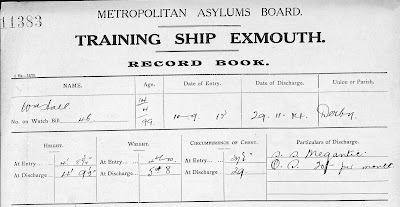 11383
METROPOLITAN ASYLUMS BOARD.
TRAINING SHIP EXMOUTH.
RECORD BOOK.
NAME. Age. Date of Entry. Date of Discharge. Union or Parish.
No. on Watch Bill 46 99 Derby
HEIGHT. WEIGHT. CIRCUMFERENCE OF CHEST. Particulars of Discharge.
At Entry At Entry At Entry S. S. Megantic
At Discharge 4' 9½" At Discharge 5 " 8 At Discharge 29 O. S. 20/- per month